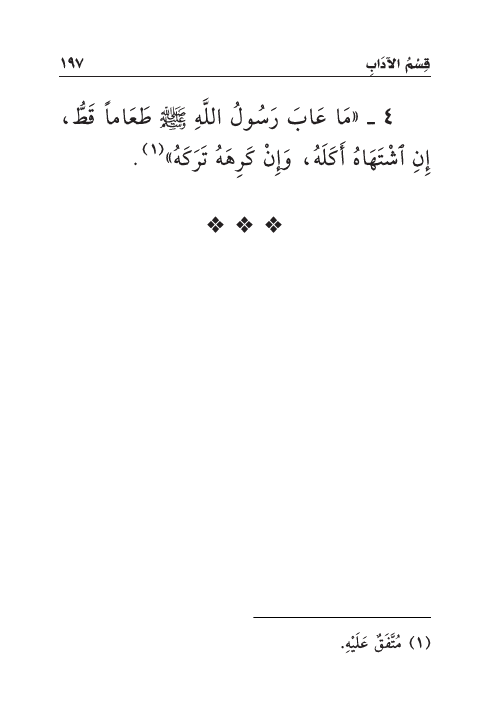 قِسْمُ الآدَابِ ١٩٧
٤ ـ «مَا عَابَ رَسُولُ اللَّهِ ﷺ طَعَاماً قَطُّ،
إِنِ ٱشْتَهَاهُ أَكَلَهُ، وَإِنْ كَرِهَهُ تَرَكَهُ»(١).
(١) مُتَّفَقٌ عَلَيْهِ.